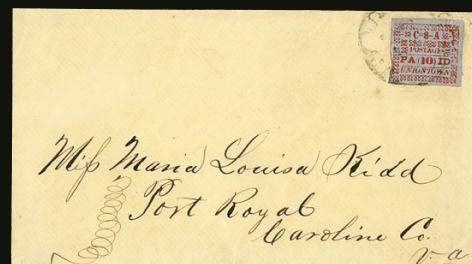 C-S-A
POSTAGE
PA(10)ID
UNIONTOWN
Miſs Maria Louisa Kidd
Port Royal
Caroline Co.
va